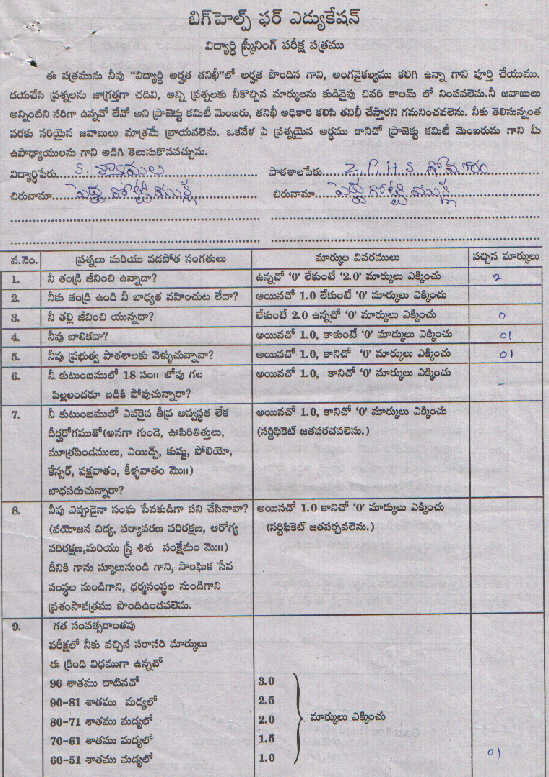 బిగ్‌హెల్ప్ ఫర్ ఎడ్యుకేషన్
విద్యార్థి స్క్రీనింగ్ పరీక్ష పత్రము
ఈ పత్రమును నీవు "విద్యార్థి అర్హత తనిఖీ"లో అర్హత పొందిన గాని, అంగవైకల్యము కలిగి ఉన్నా గాని పూర్తి చేయుము.
దయచేసి ప్రశ్నలను జాగ్రత్తగా చదివి, అన్ని ప్రశ్నలకు నీకొచ్చిన మార్కులను కుడివైపు చివరి కాలమ్ లో నింపవలెను.నీ జవాబులు
అన్నింటిని సరిగా ఉన్నవో లేవో అని ప్రాజెక్టు కమిటీ మెంబరు, తనిఖీ అధికారి కలిసి తనిఖీ చేస్తారని గమనించవలెను. నీకు తెలిసినంత
వరకు సరియైన జవాబులు మాత్రమే వ్రాయవలెను. ఒకవేళ ఏ ప్రశ్నయైన అర్థము కానిచో ప్రాజెక్టు కమిటీ మెంబరును గాని మీ
ఉపాధ్యాయులను గాని అడిగి తెలుసుకొనవచ్చును.
విద్యార్థిపేరు S. పాఠశాలపేరు Z.P.H.S
చిరునామా చిరునామా
వ.నెం. ప్రశ్నలు మరియు వడపోత సంగతులు మార్కుల వివరములు వచ్చిన మార్కులు
1. నీ తండ్రి జీవించి ఉన్నాడా? ఉన్నచో '0' లేకుంటే '2.0' మార్కులు ఎక్కించు 2
2. నీకు తండ్రి ఉండి నీ బాధ్యత వహించుట లేదా? అయినచో 1.0 లేకుంటే '0' మార్కులు ఎక్కించు
3. నీ తల్లి జీవించి యున్నదా? లేకుంటే 2.0 ఉన్నచో '0' మార్కులు ఎక్కించు 0
4. నీవు బాలికవా? అయినచో 1.0, కాకుంటే '0' మార్కులు ఎక్కించు 01
5. నీవు ప్రభుత్వ పాఠశాలకు వెళ్ళుచున్నావా? అయినచో 1.0, కానిచో '0' మార్కులు ఎక్కించు 01
6. నీ కుటుంబములో 18 సం॥ లోపు గల అయినచో 1.0, కానిచో '0' మార్కులు ఎక్కించు
పిల్లలందరూ బడికి పోవుచున్నారా?
7. నీ కుటుంబములో ఎవరైన తీవ్ర అస్వస్థత లేక అయినచో 1.0, కానిచో '0' మార్కులు ఎక్కించు
దీర్ఘరోగముతో(అనగా గుండె, ఊపిరితిత్తులు, (సర్టిఫికెట్ జతపరచవలెను.)
మూత్రపిండములు, ఎయిడ్స, కుష్టు, పోలియో,
కేన్సర్, పక్షవాతం, కీళ్ళవాతం మొ॥)
బాధపడుచున్నారా?
8. నీవు ఎప్పుడైనా సంఘ సేవకుడిగా పని చేసినావా? అయినచో 1.0 కానిచో '0' మార్కులు ఎక్కించు
(వయోజన విద్య, పర్యావరణ పరిరక్షణ, ఆరోగ్య (సర్టిఫికెట్ జతపర్చవలెను.)
పరిరక్షణ,మరియు స్త్రీ శిశు సంక్షేమం మొ॥)
దీనికి గాను స్కూలునుండి గాని, సాంఘిక సేవ
సంస్థల నుండిగాని, ధర్మసంస్థల నుండిగాని
ప్రశంసాపత్రము పొందిఉండవలెను.
9. గత సంవత్సరాంతపు
పరీక్షలో నీకు వచ్చిన సరాసరి మార్కులు
ఈ క్రింది విధముగా ఉన్నచో
90 శాతము దాటినచో 3.0
90-81 శాతము మధ్యలో 2.5
80-71 శాతము మధ్యలో 2.0 మార్కులు ఎక్కించు
70-61 శాతము మధ్యలో 1.5
60-51 శాతము మధ్యలో 1.0 01